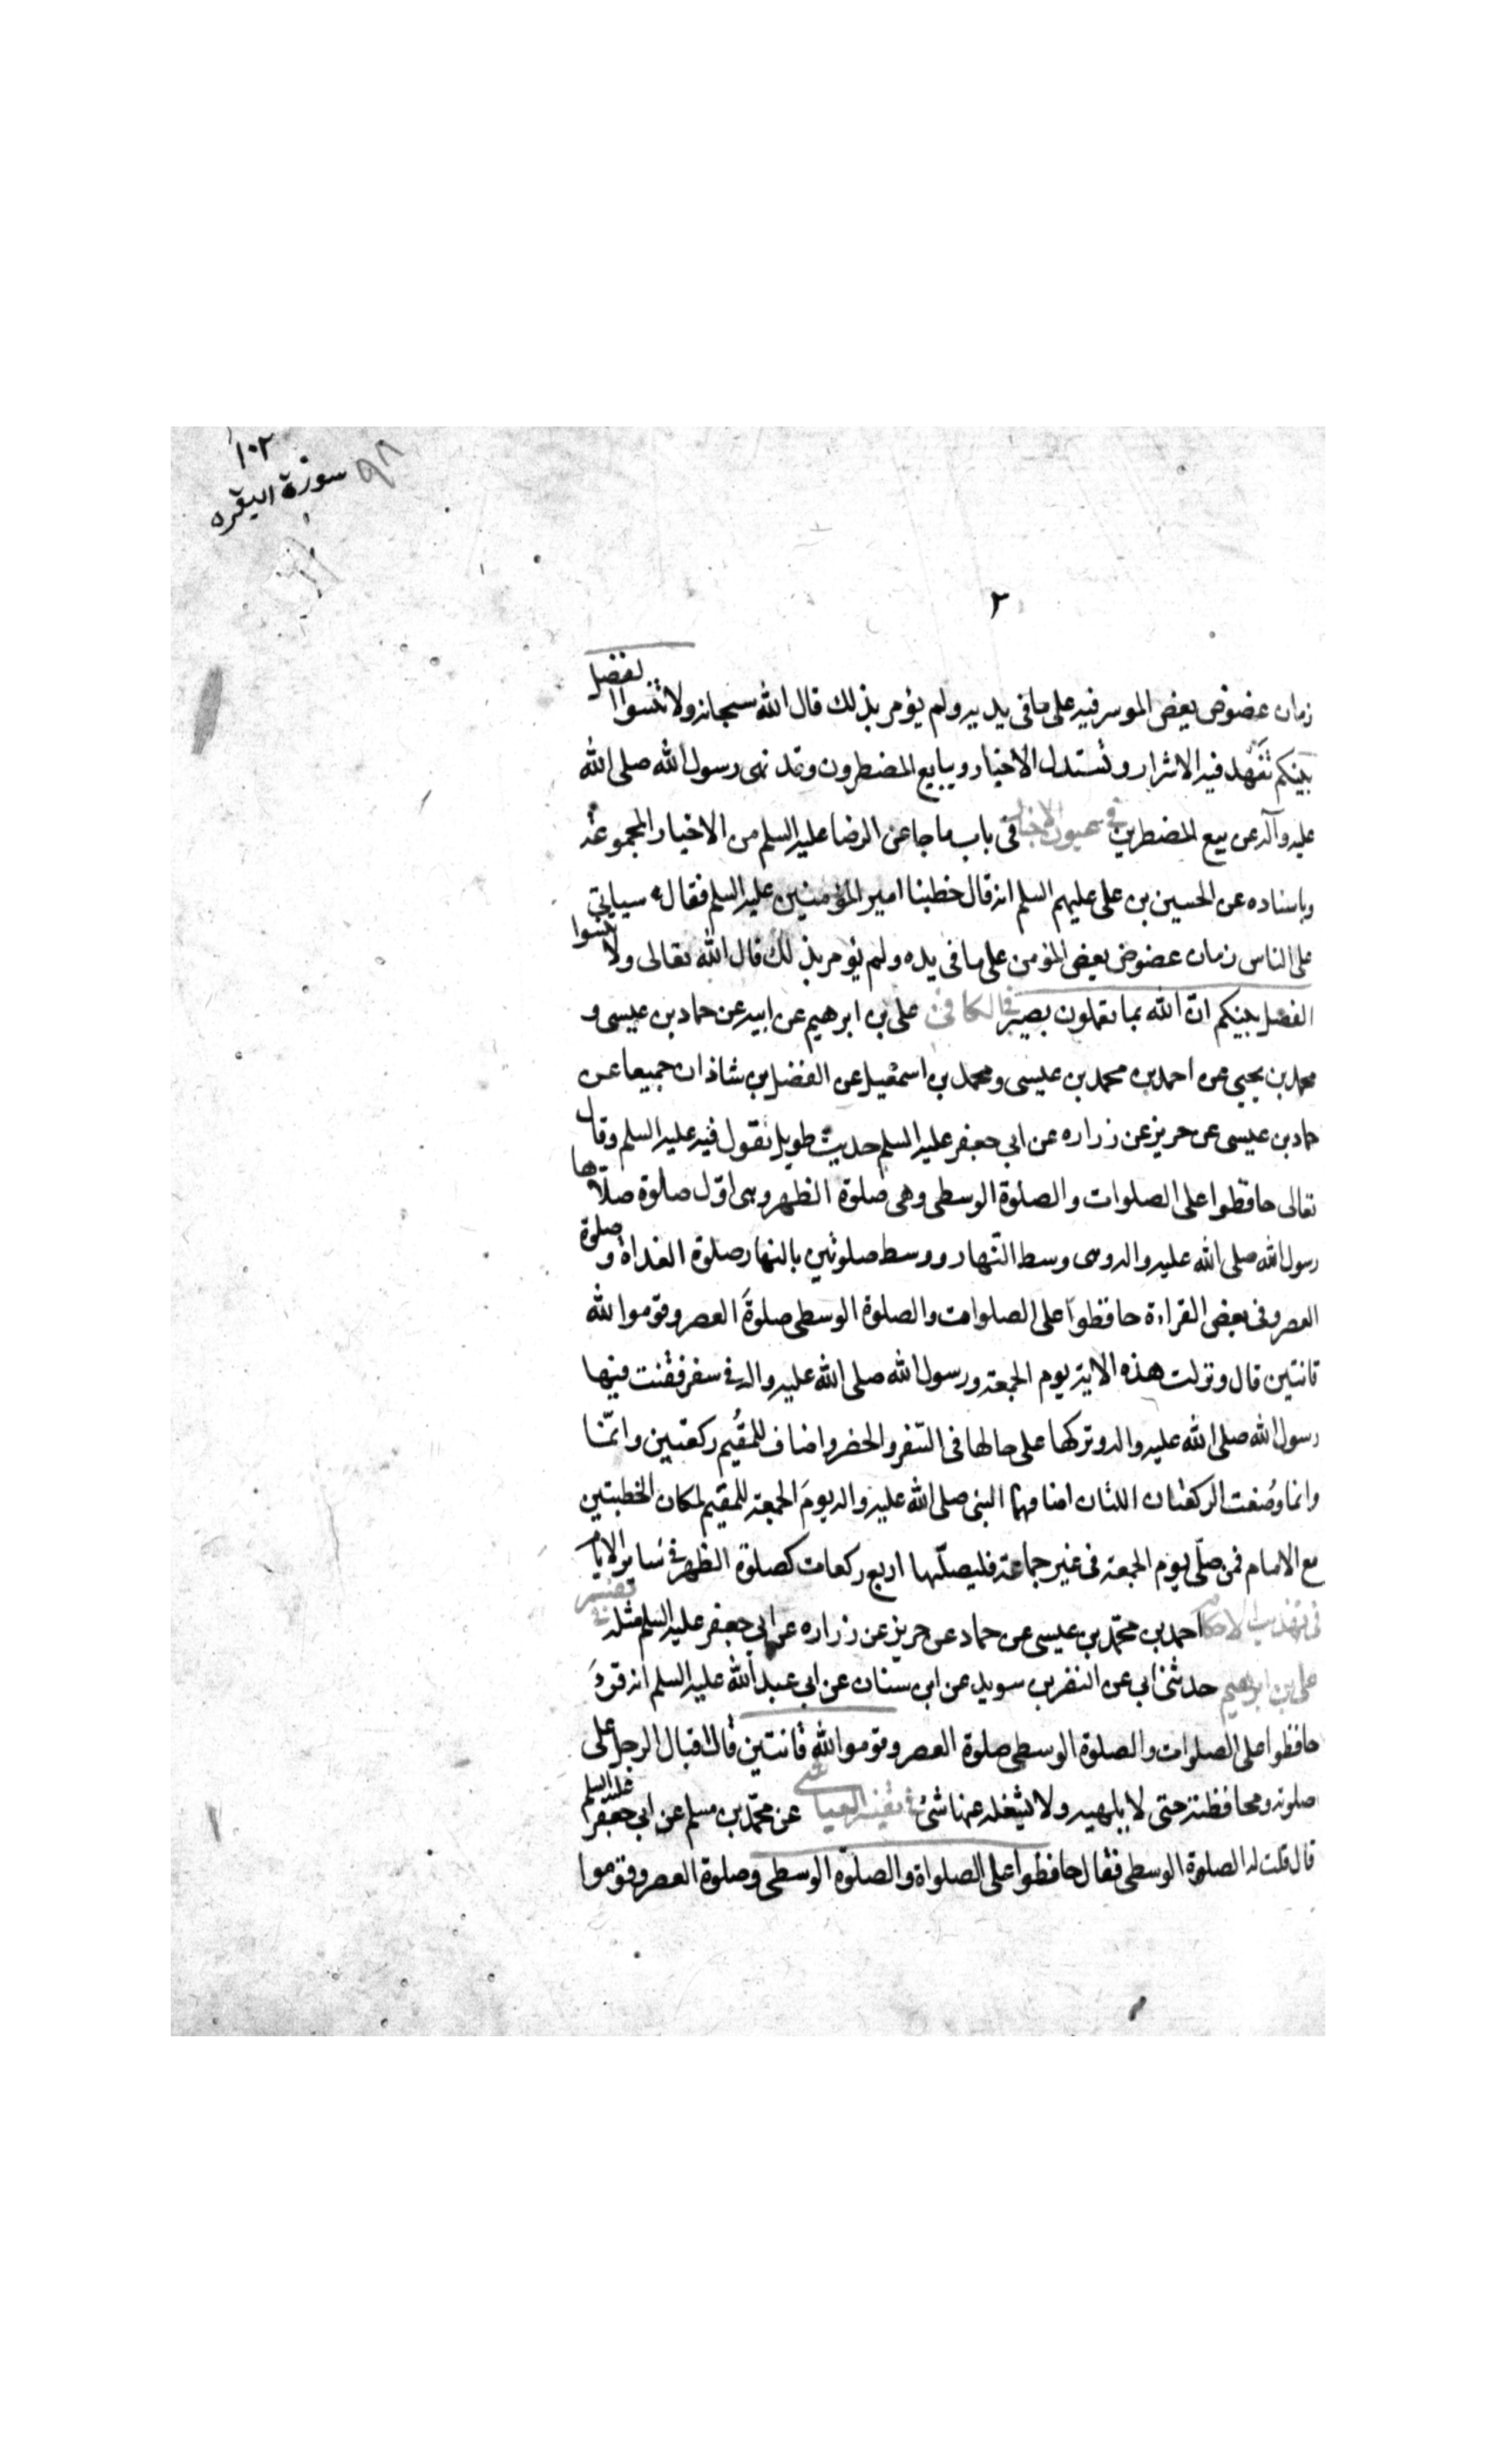 ١٠٢
سورة البقره
٩٨
٢
زمان عضوض يعض الموسر فيه على ما فى يديه ولم يؤمر بذلك قال الله سبحانه ولا تنسوا الفضل
بينكم تنهد فيه الاشرار وتستذل الاخيار ويبايع المضطرون وقد نهى رسول الله صلى الله
عليه وآله عن بيع المضطرين فى عيون الاخبار فى باب ما جا عن الرضا عليه السلم من الاخبار المجموعة
وباسناده عن الحسين بن على عليهم السلم انه قال خطبنا امير المؤمنين عليه السلم فقال سياتى
على الناس زمان عضوض يعض المؤمن على ما فى يده ولم يؤمر بذلك قال الله تعالى ولا تنسوا
الفضل بينكم ان الله بما تعملون بصير فى الكافى على بن ابرهيم عن ابيه عن حماد بن عيسى و
محمد بن يحيى عن احمد بن محمد بن عيسى ومحمد بن اسمعيل عن الفضل بن شاذان جميعا عن
حماد بن عيسى عن حريز عن زراره عن ابى جعفر عليه السلم حديث طويل يقول فيه عليه السلم وقال
تعالى حافظوا على الصلوات والصلوة الوسطى وهى صلوة الظهر وهى اوّل صلوة صلّاها
رسول الله صلى الله عليه واله وهى وسط النّهار ووسط صلوتين بالنهار صلوة الغداة و صلوة
العصر وفى بعض القراءة حافظوا على الصلوات والصلوة الوسطى صلوةَ العصر وقوموا لله
قانتين قال ونزلت هذه الاية يوم الجمعة ورسول الله صلى الله عليه واله فى سفر فقنت فيها
رسول الله صلى الله عليه واله وتركها على حالها فى السّفر والحضر واضاف للمقُيم ركعتين وانمّا
وانما وُضعت الركعتان اللتان اضافهما النبى صلى الله عليه واله يومَ الجمعة للمقيم لمكان الخطبتين
مع الامام فمن صلّى يوم الجمعة فى غير جماعة فليصلّها اربع ركعات كصلوة الظهر فى سائر الايام
فى تهذيب الاحكام احمد بن محمّد بن عيسى عن حماد عن حريز عن زراره عن ابى جعفر عليه السلم مثله فى تفسير
على بن ابرهيم حدثنى ابى عن النضر بن سويد عن ابن سنان عن ابى عبد الله عليه السلم انه قرءَ
حافظوا على الصلوات والصلوة الوسطى صلوة العصر وقوموا لله قانتين قال اقبال الرجل على
صلوته ومحافظته حتى لا يلهيه ولا يشغله عنها شئ فى تفسير العياشى عن محمّد بن مسلم عن ابى جعفر عليه السلم
قال قلت له الصلوة الوسطى فقال حافظوا على الصلواة والصلوة الوسطى وصلوة العصر وقوموا